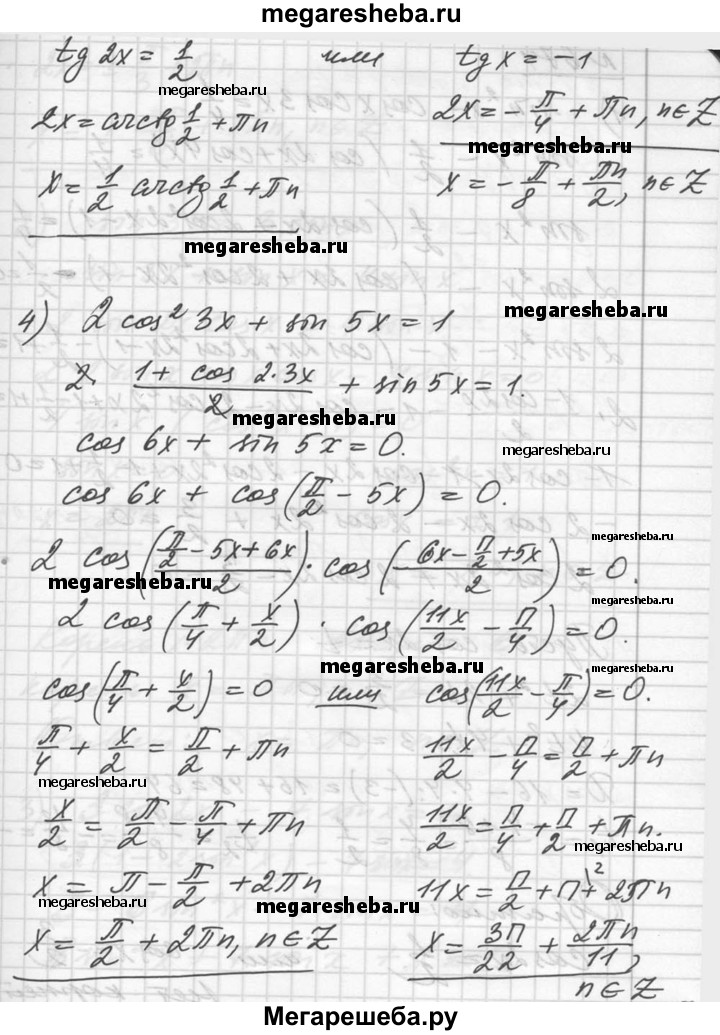 megaresheba.ru
tg 2x = 1/2 или tg x = -1
megaresheba.ru
2x = arctg 1/2 + πn 2x = -π/4 + πn, n∈Z
megaresheba.ru
x = 1/2 arctg 1/2 + πn x = -π/8 + πn/2, n∈Z
megaresheba.ru
megaresheba.ru
4) 2 cos² 3x + sin 5x = 1
2 · (1 + cos 2·3x)/2 + sin 5x = 1.
megaresheba.ru
cos 6x + sin 5x = 0.
megaresheba.ru
cos 6x + cos(π/2 - 5x) = 0.
megaresheba.ru
2 cos((π/2 - 5x + 6x)/2) · cos((6x - π/2 + 5x)/2) = 0.
megaresheba.ru
megaresheba.ru
2 cos(π/4 + x/2) · cos(11x/2 - π/4) = 0.
megaresheba.ru
megaresheba.ru
cos(π/4 + x/2) = 0 или cos(11x/2 - π/4) = 0.
π/4 + x/2 = π/2 + πn 11x/2 - π/4 = π/2 + πn
megaresheba.ru
megaresheba.ru
x/2 = π/2 - π/4 + πn 11x/2 = π/4 + π/2 + πn.
megaresheba.ru
x = π - π/2 + 2πn 11x = π/2 + π + 2πn
megaresheba.ru
megaresheba.ru
megaresheba.ru
x = π/2 + 2πn, n∈Z x = 3π/22 + 2πn/11,
n∈Z
Мегарешеба.ру